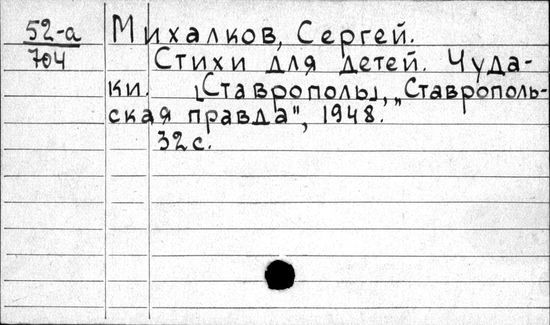 52-а
704
Михалков, Сергей.
Стихи для детей. Чуда-
ки. [Ставрополь], „Ставрополь-
ская правда", 1948.
32 с.